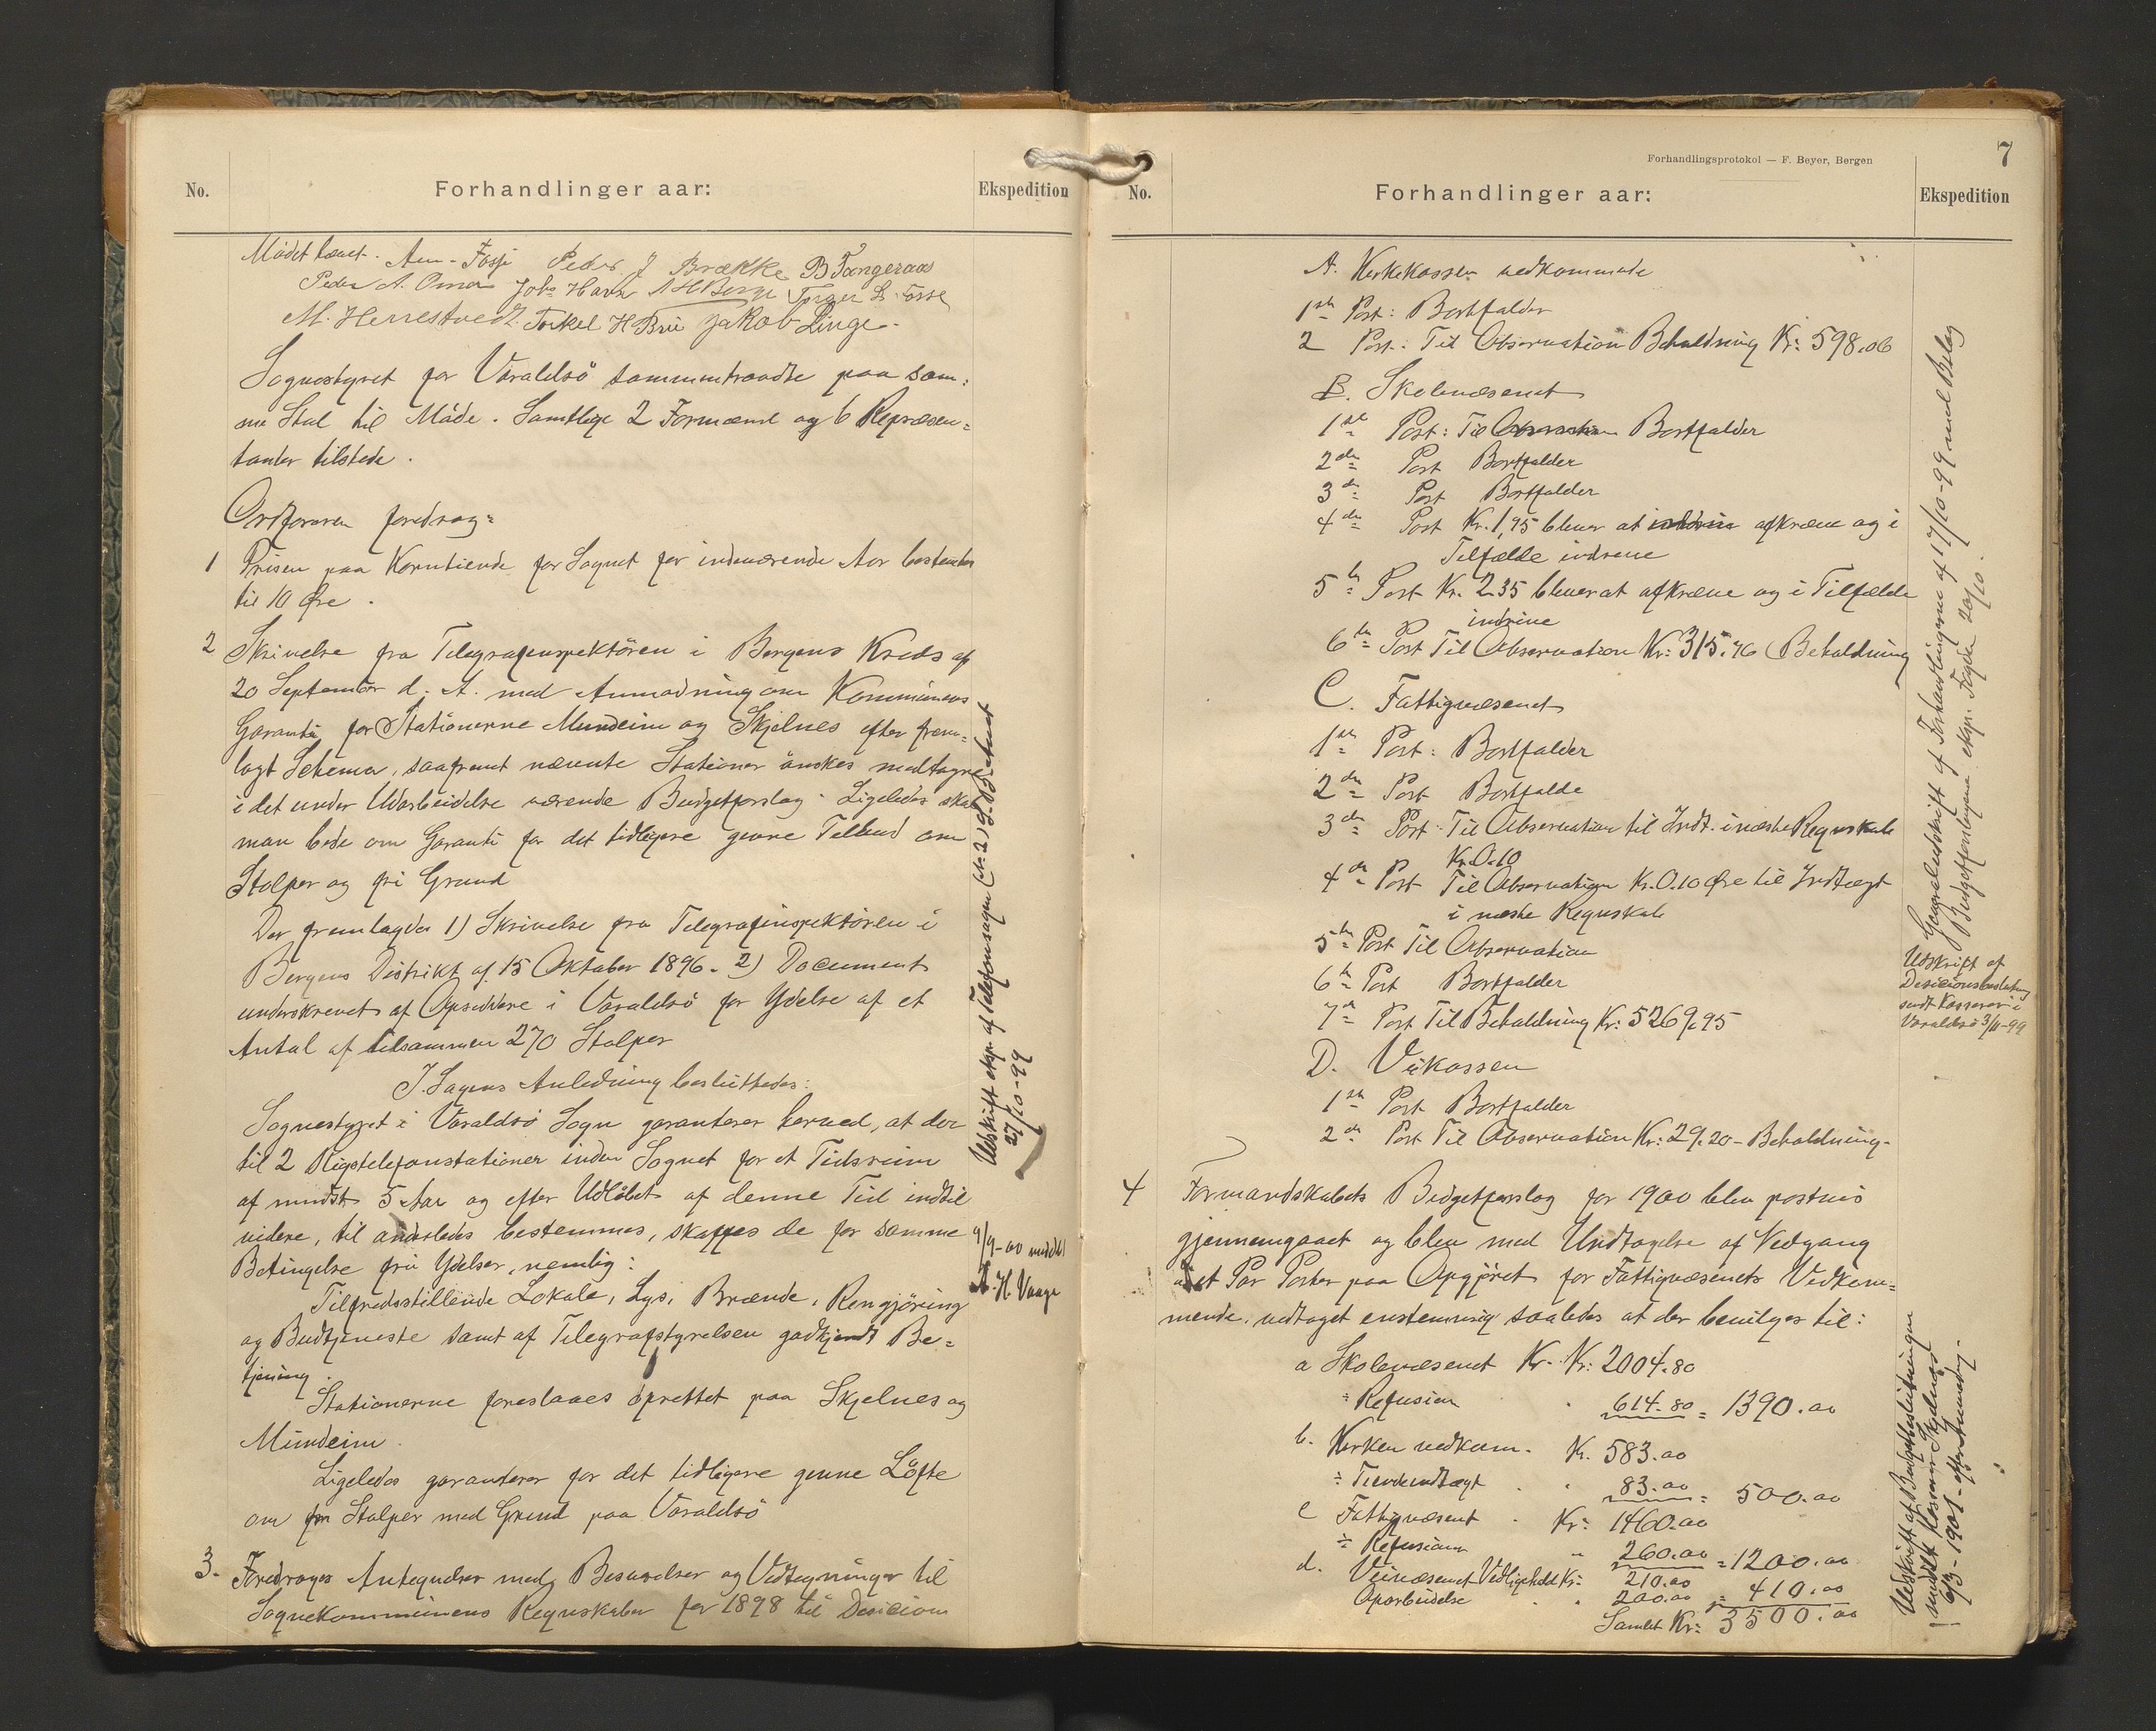 No.
Forhandlinger aar:
Ekspedition
Mødet hævet.
Peder J Brække B Tangeraas
Peder A. Omer Johs Havn A H Berge Torger L. Fosse
M. Herrestvedt. Torkel H Brü Jakob Linge.
Sognestyret for Varaldsö sammentraadte paa sam-
me Stad til Möde. Samtlige 2 Formænd og 6 Repræsen-
tanter tilstede.
Ordføreren foredrog:
1 Prisen paa Korntiende for Sognet for indeværende Aar bestemtes
til 10 Øre.
2 Skrivelse fra Telegrafinspektören i Bergens Kreds af
20 September d. A. med Anmodning om Kommunens
Garanti for Stationerne Mundeim og Skjelnes efter frem-
lagt Schema, saafremt nævnte Stationer önskes medtagne
i det under Udarbeidelse værende Budgetforslag. Ligeledes skal
man bede om Garanti for det tidligere givne Tilbud om
Stolper og fri Grund
Der fremlagdes 1) Skrivelse fra Telegrafinspektören i
Bergens Distrikt af 15 Oktober 1896. 2) Document
underskrevet af Opsiddere i Varaldsö for Ydelse af et
Antal af tilsammen 270 Stolper
I Sagens Anledning besluttedes:
Sognestyret i Varaldsö Sogn garanterer herved, at der
til 2 Rigstelefonstationer inden Sognet for et Tidsrum
af mindst 5 Aar og efter Udlöbet af denne Tid indtil
videre, til anderledes bestemmes, skaffes de for samme
Betingelse frie Ydelser, nemlig:
Tilfredsstillende Lokale, Lys, Brænde, Rengjöring
og Budtjeneste samt af Telegrafstyrelsen godkjendt Be-
tjening.
Stationerne foreslaaes oprettet paa Skjelnes og
Mundeim.
Ligeledes garanteres for det tidligere givne Löfte
om fri Stolper med Grund paa Varaldsö
3. Foredroges Antegnelser med Besvarelser og Vedtegninger til
Sognekommunens Regnskaber for 1898 til Desicion
Udskrift eksp. af Telefonsagen (No 2)
27/10-99
9/9-00 meddelt
A. H. Vaage
Forhandlingsprotokol — F. Beyer, Bergen
7
No.
Forhandlinger aar:
Ekspedition
A. Kirkekassen vedkommende
1ste Post: Bortfalder
2 Post: Til Observation Beholdning Kr: 598.06
B. Skolevæsenet
1ste Post: Til Observation Bortfalder
2den Post Bortfalder
3de Post Bortfalder
4de Post Kr. 1,95 bliver at inddrive afkræve og i
Tilfælde inddrive
5te Post Kr. 2.35 bliver at afkræve og i Tilfælde
inddrive
6te Post Til Observation Kr: 315.76 Beholdning
C. Fattigvæsenet
1ste Post: Bortfalder
2den Post Bortfalde
3de Post: Til Observation til Indt. i næste Regnskab
Kr. 0.10
4de Post Til Observation Kr. 0.10 Øre til Indtægt
i næste Regnskab
5te Post Til Observation
6te Post Bortfalder
7de Post Til Beholdning Kr: 5269.95
D. Veikassen
1ste Post Bortfalder
2den Post Til Observation Kr: 29.20 - Beholdning.
4 Formandskabets Budgetforslag for 1900 blev postvis
gjennemgaaet og blev med Undtagelse af Vedgang
et Par Poster paa Opgjöret for Fattigvæsenets Vedkom-
mende, vedtaget enstemmig saaledes at der bevilges til:
a Skolevæsenet Kr. Kr: 2004.80
÷ Refusion 614.80 = 1390.00
b. Kirken vedkom. Kr. 583.00
÷ Tiendeindtægt 83.00 = 500.00
c Fattigvæsenet Kr: 1460.00
÷ Refusion 260.00 = 1200.00
d. Veivæsenet Vedligehold Kr: 210.00
Oparbeidelse 200.00 = 410.00
Samlet Kr: 3500.00
Genpartudskrift af Forhandlingerne af 17/10-99 med Bilag
Budgetforslagene eksp. Fogden 20/10.
Udskrift af
Desicionsbeslutning
sendt Kassereren i
Varaldsö 3/11-99
Udskrift af Budgetbeslutningen
meddelt
6/3-1901